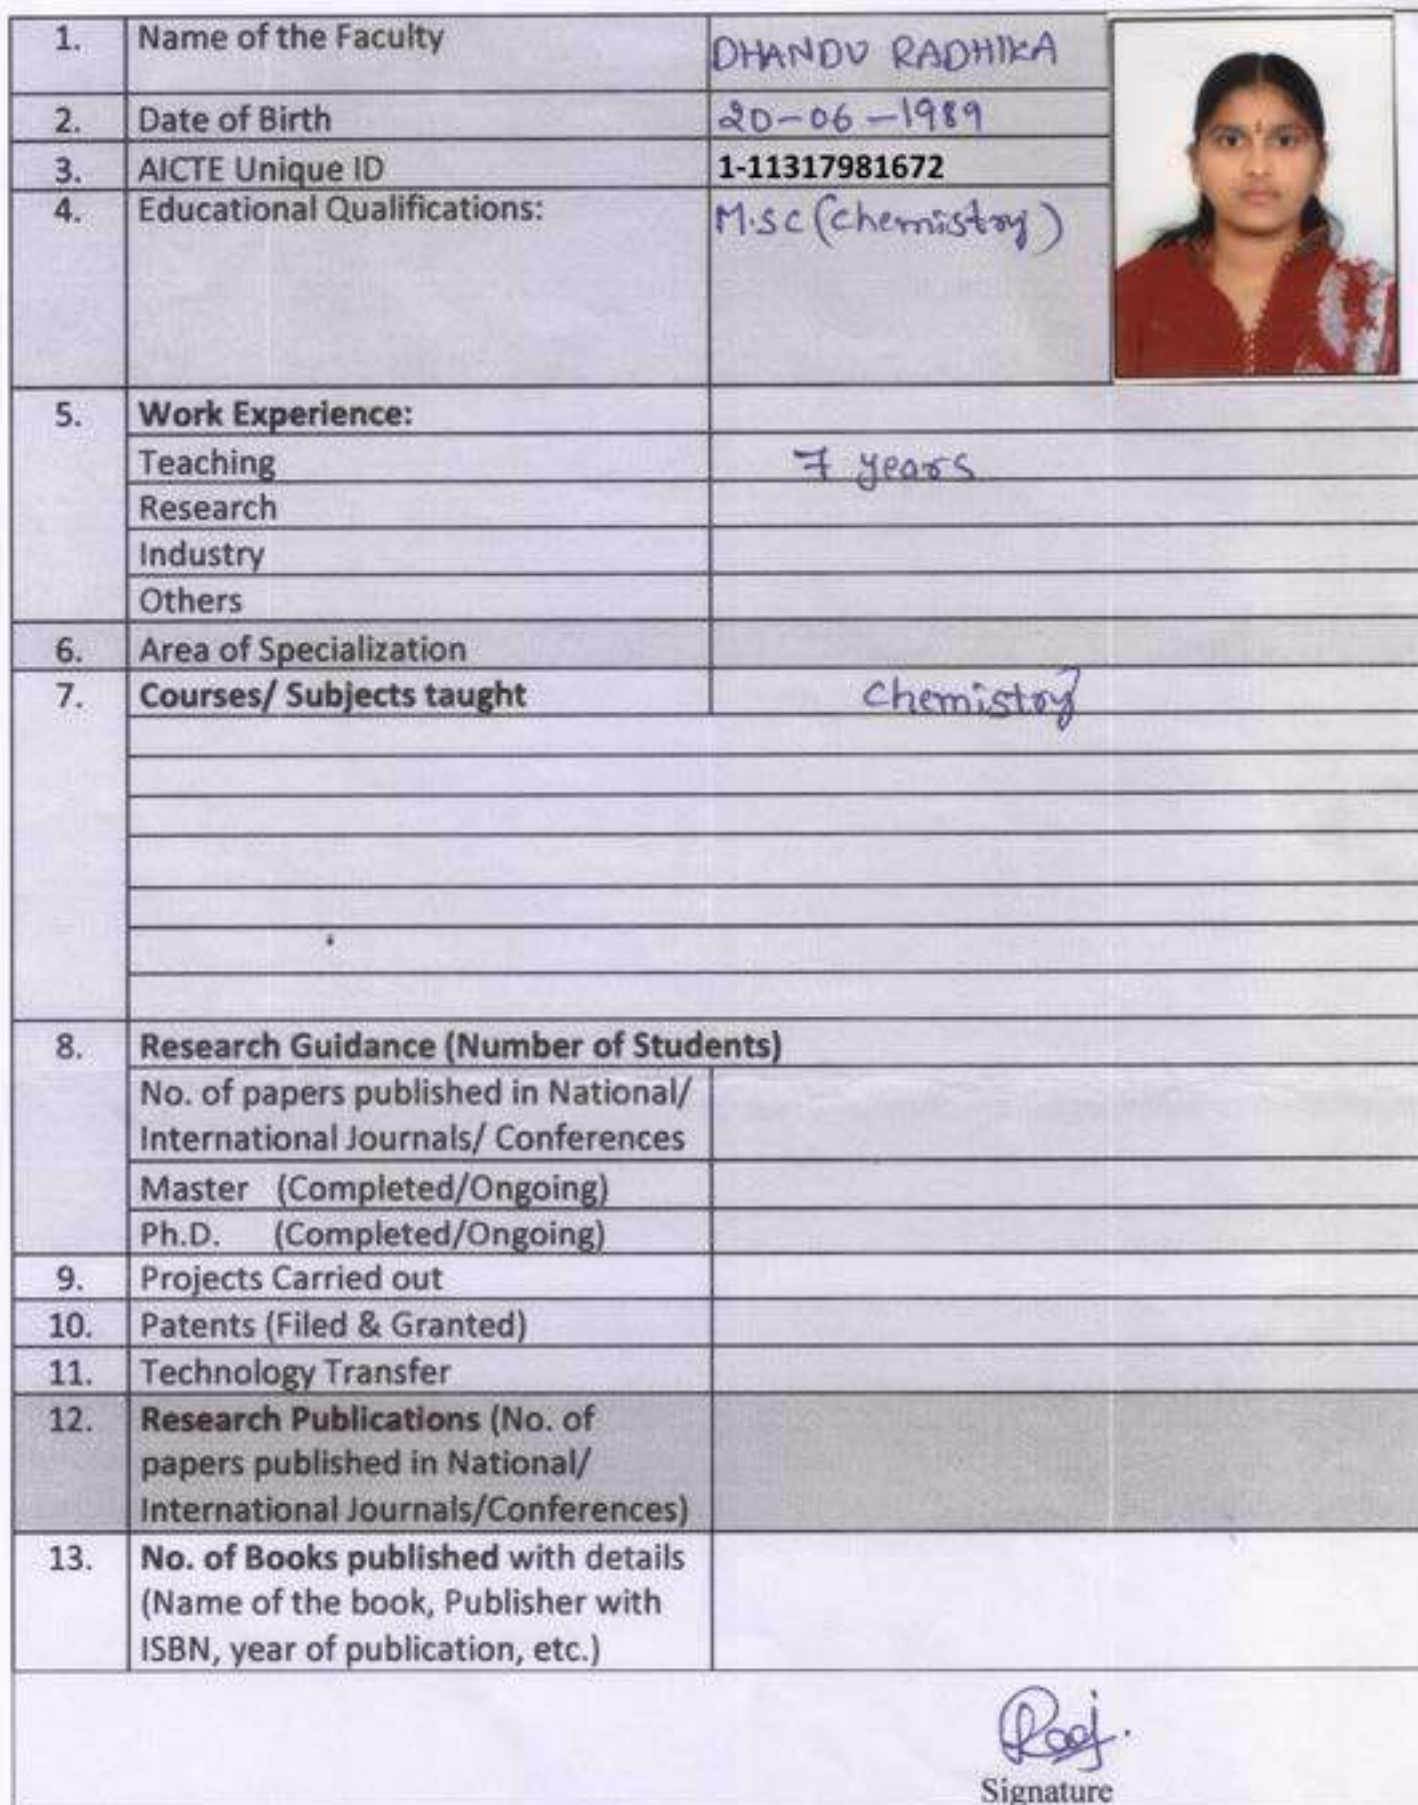 1. Name of the Faculty DHANDU RADHIKA
2. Date of Birth 20-06-1989
3. AICTE Unique ID 1-11317981672
4. Educational Qualifications: M.sc (chemistry)
5. Work Experience:
Teaching 7 years
Research
Industry
Others
6. Area of Specialization
7. Courses/ Subjects taught chemistry
8. Research Guidance (Number of Students)
No. of papers published in National/
International Journals/ Conferences
Master (Completed/Ongoing)
Ph.D. (Completed/Ongoing)
9. Projects Carried out
10. Patents (Filed & Granted)
11. Technology Transfer
12. Research Publications (No. of
papers published in National/
International Journals/Conferences)
13. No. of Books published with details
(Name of the book, Publisher with
ISBN, year of publication, etc.)
Signature